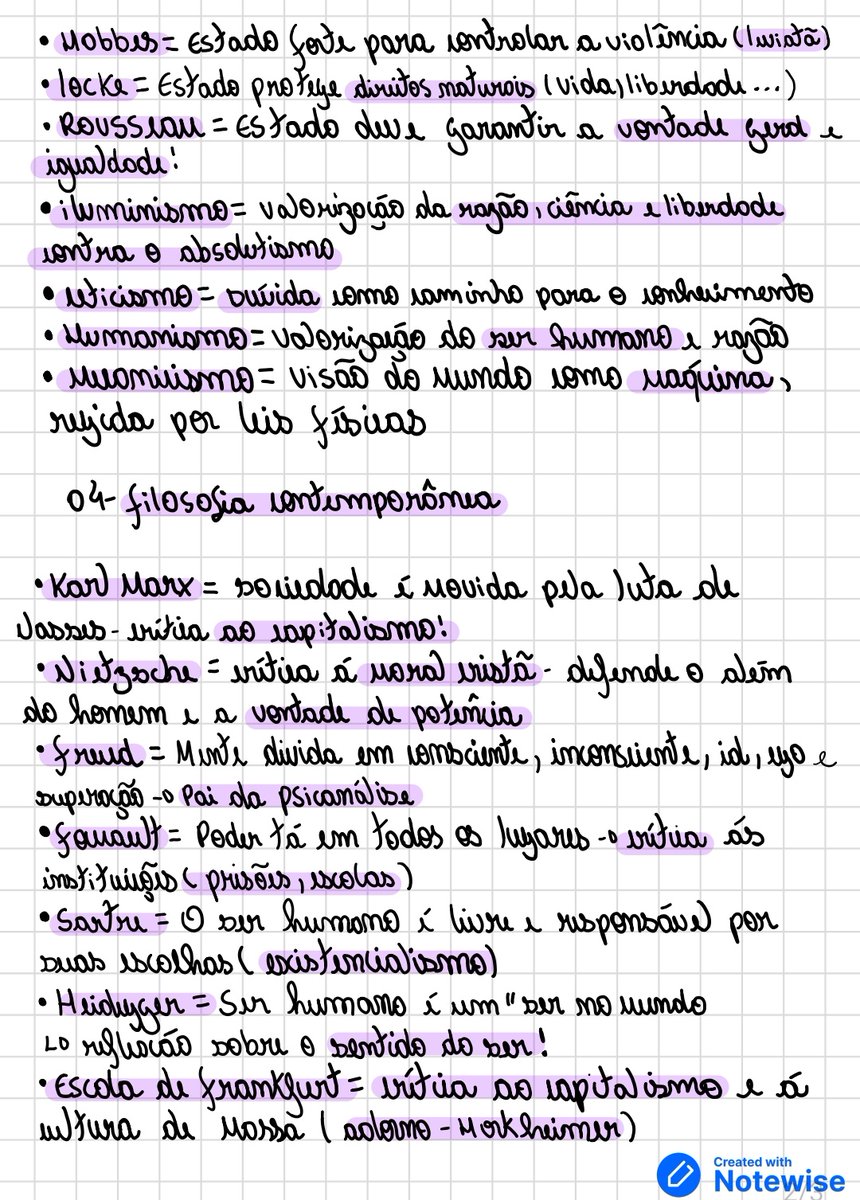 • Hobbes = Estado forte para controlar a violência (leviatã)
• locke = Estado protege direitos naturais (vida, liberdade ...)
• Rousseau = Estado deve garantir a vontade geral e
igualdade!
• iluminismo = valorização da razão, ciência e liberdade
contra o absolutismo
• ceticismo = Dúvida como caminho para o conhecimento
• Humanismo = valorização do ser humano e razão
• Mecanicismo = visão do mundo como maquina,
rejida por leis físicas
04- filosofia contemporânea
• Karl Marx = sociedade é movida pela luta de
classes - crítica ao capitalismo!
• Nietzsche = crítica á moral cristã - defende o além
do homem e a vontade de potência
• freud = Mente divida em consciente, inconsciente, id, ego e
superação -o Pai da Psicanálise
• foucault = Poder tá em todos os lugares -o crítica ás
instituições ( prisões, escolas)
• Sartre = O ser humano é livre e responsável por
suas escolhas ( existencialismo)
• Heidegger = Ser humano é um " ser no mundo
Lo reflexão sobre o sentido do ser!
• Escola de frankfurt = crítica ao capitalismo e á
cultura de massa ( adorno - Horkheimer)
Created with
Notewise
2/3